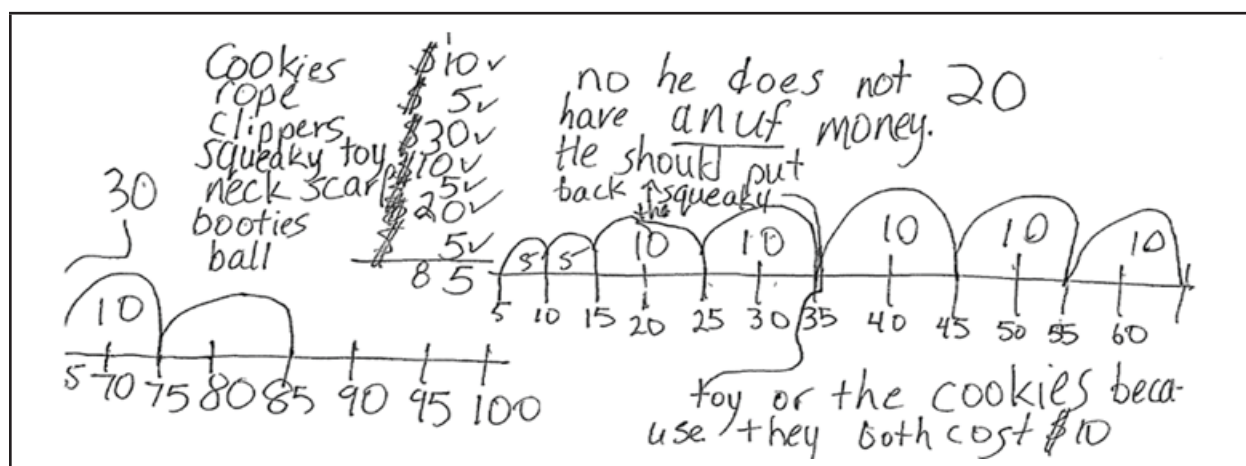 Cookies $10✓
rope $ 5✓
clippers $30✓
squeaky toy $10✓
neck scarf 5✓
booties $20✓
ball 5✓
1
8 5
no he does not 20
have anuf money.
He should put
back the squeaky
toy or the cookies beca-
use they both cost $10
5 5 10 10 10 10 10
5 10 15 20 25 30 35 40 45 50 55 60
30
10
5 70 75 80 85 90 95 100